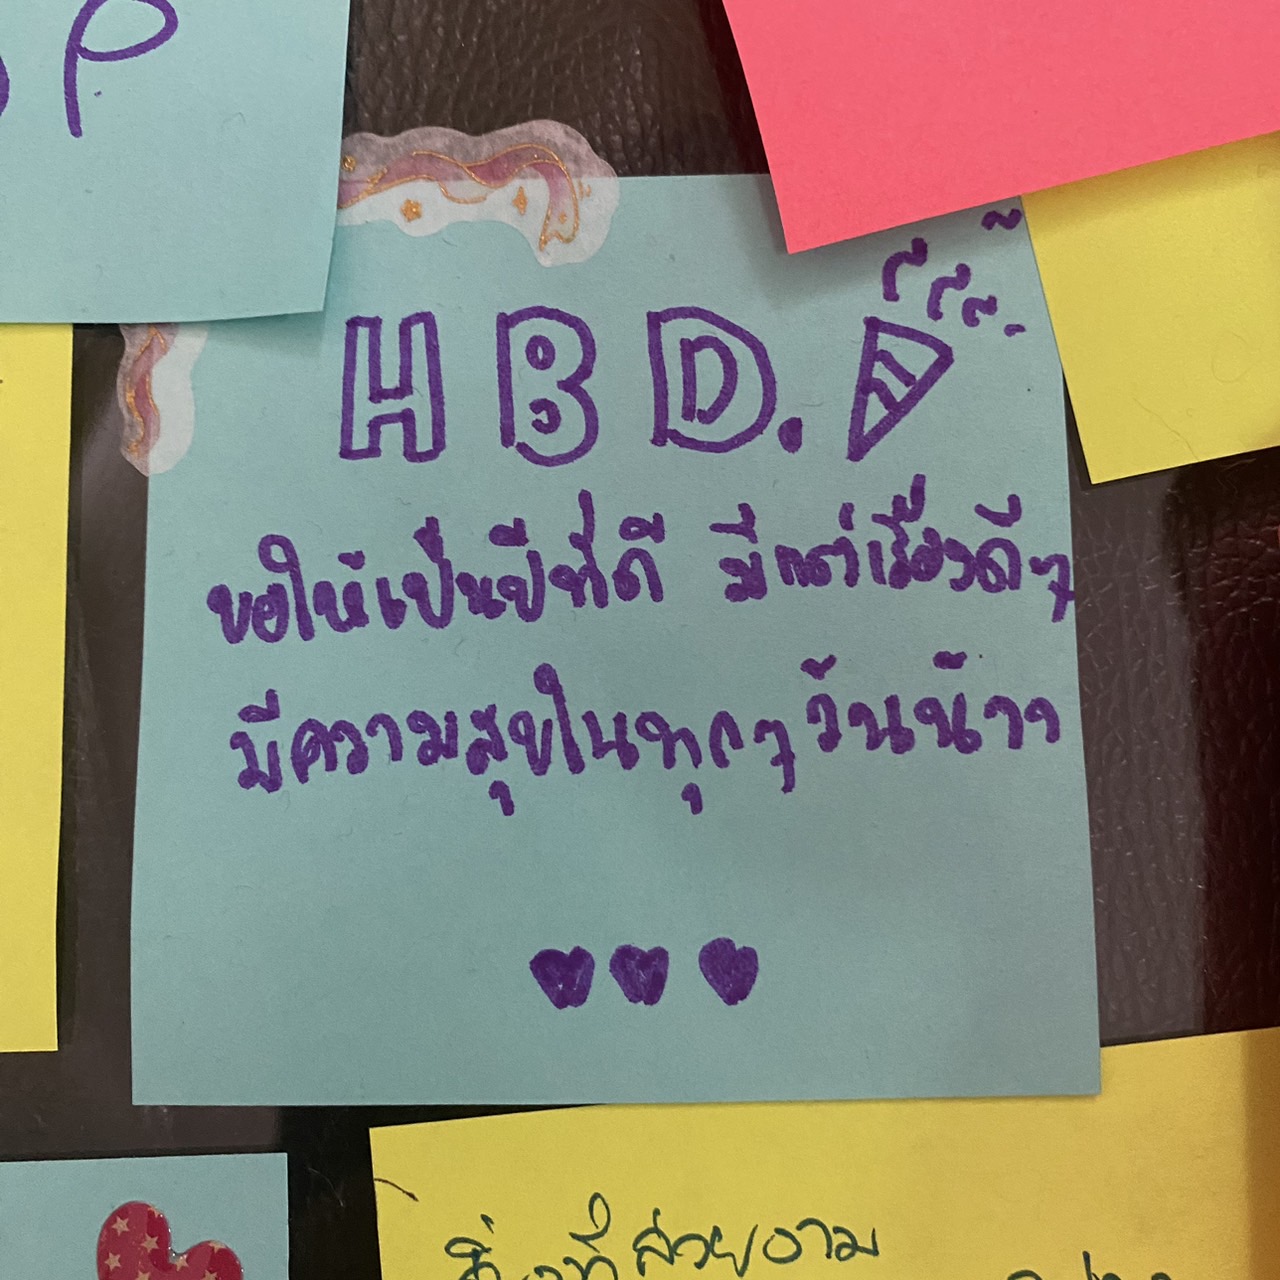 P
HBD.
ขอให้เป็นปีที่ดี มีแต่เรื่องดีๆ
มีความสุขในทุกๆวันน้าา
สิ่งที่สวยงาม